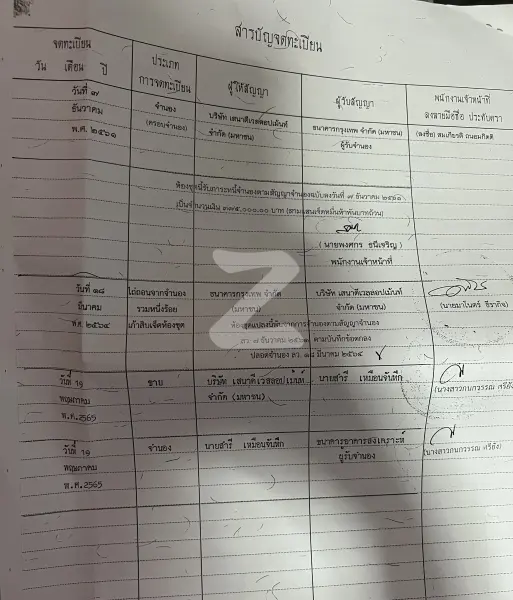 สารบัญจดทะเบียน
จดทะเบียน
วัน เดือน ปี
ประเภท
การจดทะเบียน
ผู้ให้สัญญา
ผู้รับสัญญา
พนักงานเจ้าหน้าที่
ลงลายมือชื่อ ประทับตรา
วันที่ ๗
ธันวาคม
พ.ศ. ๒๕๖๑
จำนอง
(ครอบจำนอง)
บริษัท เสนาดีเวลลอปเม้นท์
จำกัด (มหาชน)
ธนาคารกรุงเทพ จำกัด (มหาชน)
ผู้รับจำนอง
(ลงชื่อ) สมเกียรติ ถนอมกิตติ
ห้องชุดนี้รับภาระหนี้จำนองตามสัญญาจำนองฉบับลงวันที่ ๗ ธันวาคม ๒๕๖๑
เป็นจำนวนเงิน ๓๗๕,๐๐๐.๐๐ บาท (สามแสนเจ็ดหมื่นห้าพันบาทถ้วน)
( นายพงศกร ธนีเจริญ )
พนักงานเจ้าหน้าที่
วันที่ ๑๘
มีนาคม
พ.ศ. ๒๕๖๔
ไถ่ถอนจากจำนอง
รวมหนึ่งร้อย
เก้าสิบเจ็ดห้องชุด
ธนาคารกรุงเทพ จำกัด
(มหาชน)
บริษัท เสนาดีเวลลอปเม้นท์
จำกัด (มหาชน)
(นายมาโนตร์ ธีรากิจ)
ห้องชุดแปลงนี้พ้นจากการจำนองตามสัญญาจำนอง
ลว. ๗ ธันวาคม ๒๕๖๑ ตามบันทึกข้อตกลง
ปลอดจำนอง ลว. ๑๘ มีนาคม ๒๕๖๔
วันที่ 19
พฤษภาคม
พ.ศ.2565
ขาย
บริษัท เสนาดีเวลลอปเม้นท์
จำกัด (มหาชน)
นายสารี เหมือนจันทึก
(นางสาวกนกวรรณ ศรีอัง
วันที่ 19
พฤษภาคม
พ.ศ.2565
จำนอง
นายสารี เหมือนจันทึก
ธนาคารอาคารสงเคราะห์
ผู้รับจำนอง
(นางสาวกนกวรรณ ศรีอัง